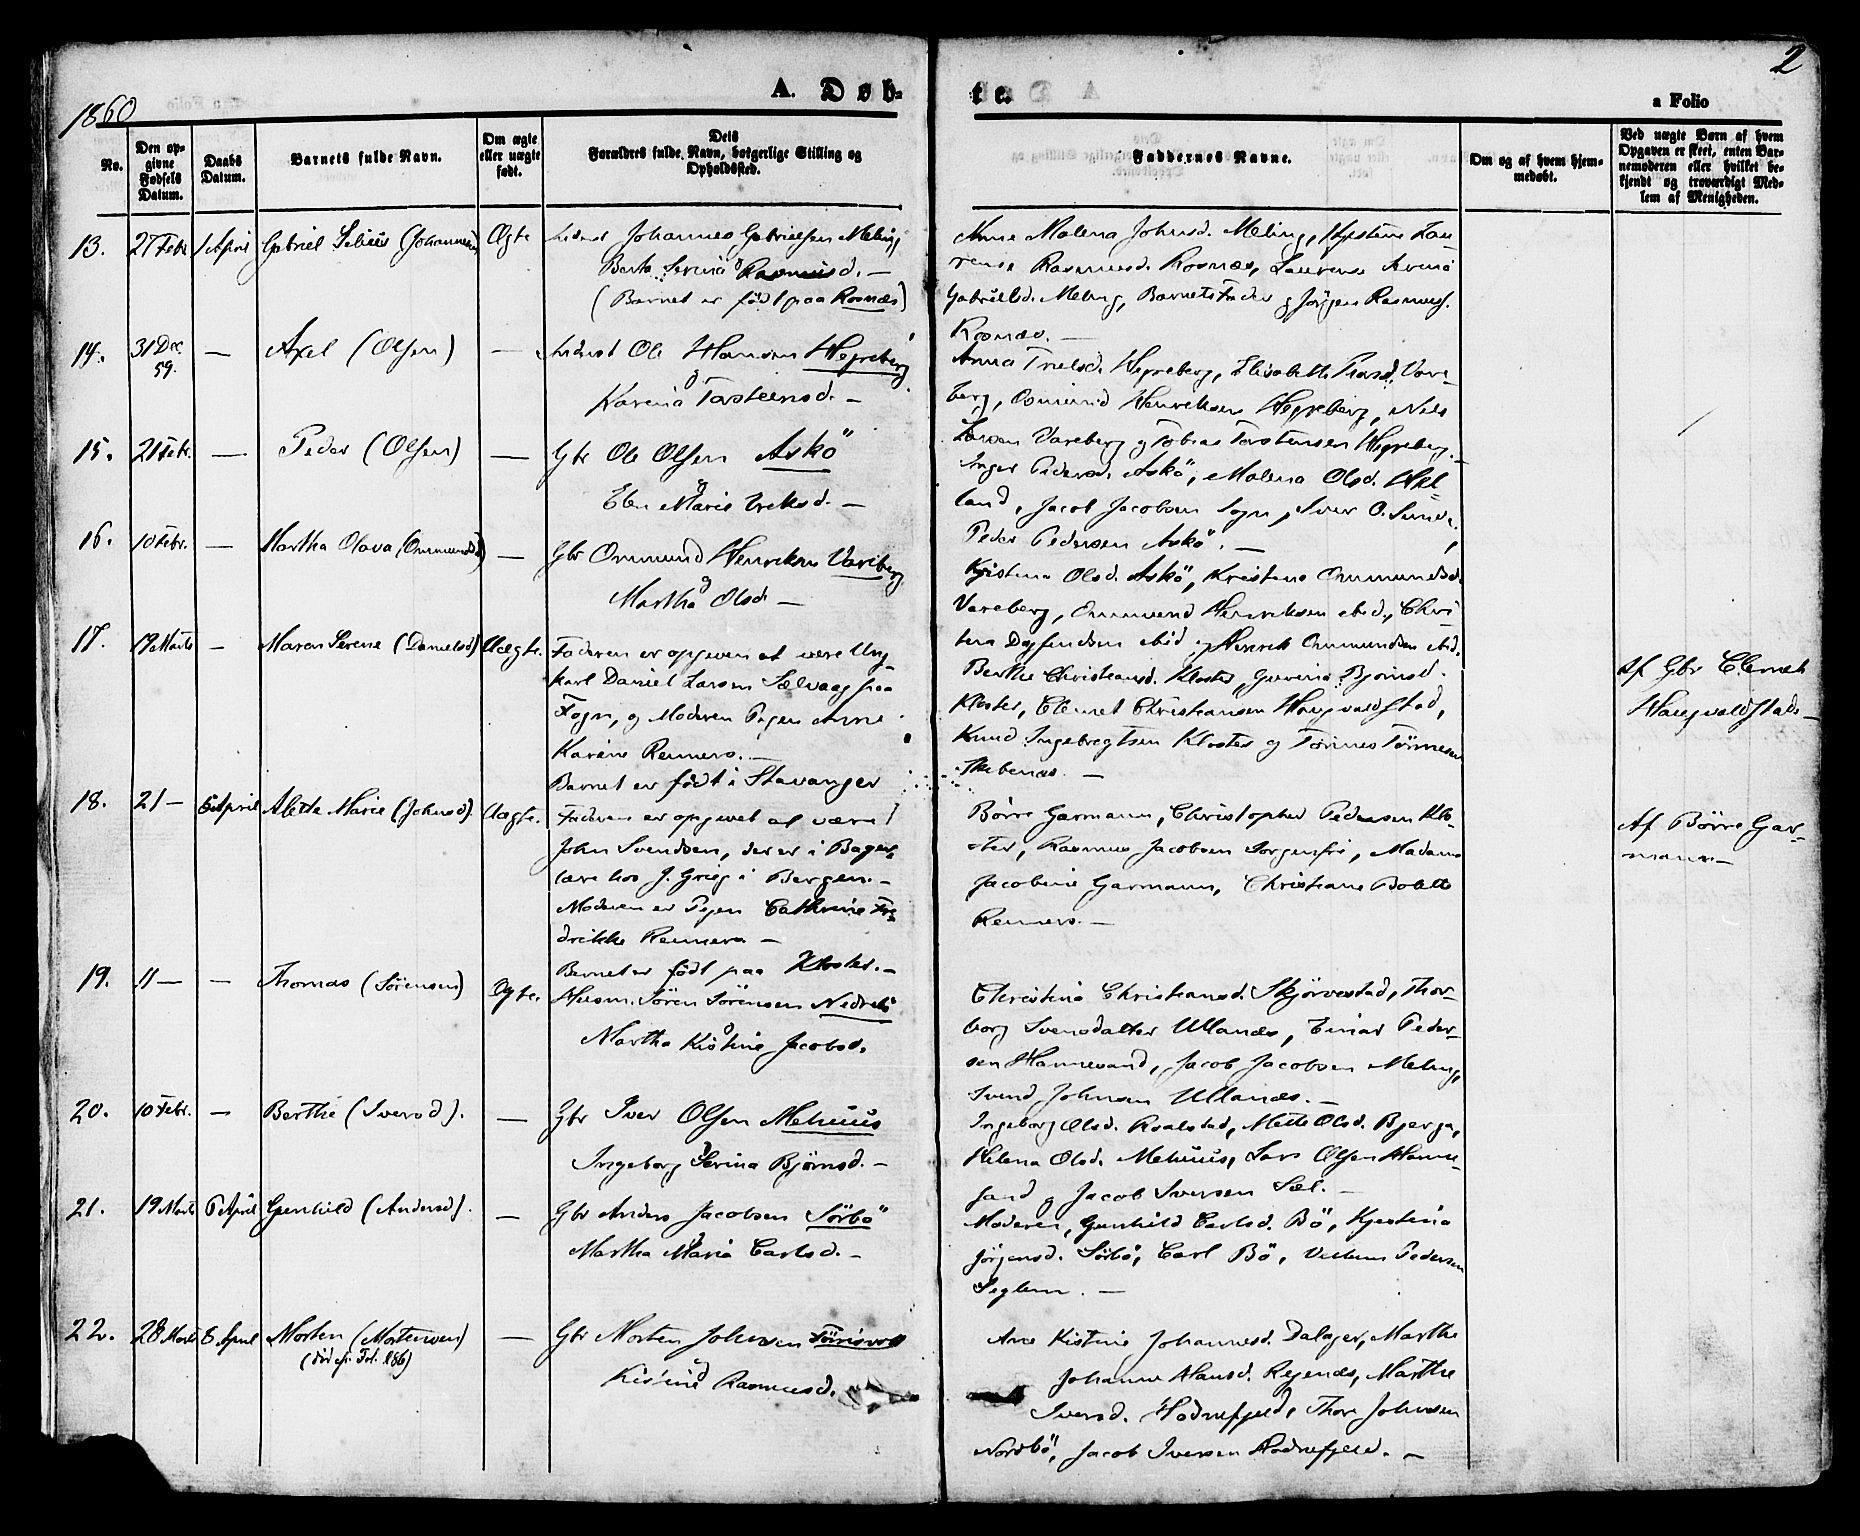 1860
2
A. Døb-
te.
a Folio
No.
Den op-
givne
Fødsels
Datum.
Daabs
Datum.
Barnets fulde Navn.
Om ægte
eller uægte
født.
Dets
Forældres fulde Navn, borgerlige Stilling og
Opholdssted.
Faddernes Navne.
Om og af hvem hjem-
medøbt.
Ved uægte Børn af hvem
Opgaven er skeet, enten Bar-
nemoderen eller hvilket be-
kjendt og troværdigt Med-
lem af Menigheden.
13. 27 Febr 1 April Gabriel (Johannesen) Ægte Johannes Gabrielsen Meling
og
Berta Serina Rasmusd. —
(Barnet er födt paa Rosnæs)
Anne Malena Johnsd. Meling, Kjistine Lau-
Rasmusd. Rosnæs, Laurense
Gabrielsd. Meling, Barnets Fader og Jörgen Rasmus.
Rosnæs. —
14. 31 Dec. 59. — Axel (Olsen) — Ole Hansen Hegreberg
og
Karina Torsteensd. —
Anna Hegreberg, Elisabeth Vare-
berg, Osmund Henriksen Hegreberg, Nils
Larsen Vareberg og Tobias Torstensen Hegreberg. —
15. 21 Febr. — Peder (Olsen) — Gbr Ole Olsen Askö
og
Elen Marie —
Inger Pedersd. Askö, Malena Olsd. Hel-
land, Jacob Jacobsen Fogn, Iver O. Sunde,
Peder Pedersen Askö. —
16. 10 Febr. — Martha Olava (Ommundsd) — Gbr Ommund Henriksen Vareberg
og
Martha Olsd. —
Kjistina Olsd. Askö, Kristens Ommundsd.
Vareberg, Ommund Henriksen ibid., Chri-
tina Dagfindsen ibid. og Henrik Ommundsen ibid.
17. 19 Marts — Maren Serene (Danielsd) Uægte. Faderen er opgiven at være Ung-
karl Daniel Larsen Selvaag paa
Fogn, og Moderen Pigen Anne
Karine Reimers. —
Barnet er födt i Stavanger
Berthe Christiansd. Kloster, Gurina Björnsd.
Kloster, Clemet Christiansen Haugvaldstad,
Knud Ingebregtsen Kloster og Tönnes Tönnesen
—
Af Gbr Clemet
Haugvaldstad. —
18. 21 — 6 April Aletta Marie (Johnsd). Uægte. Faderen er opgivet at være
John Svendsen, der er i Bager-
lære hos J. Grieg i Bergen. —
Moderen er Pigen Cathrine Fre-
drikke Reimers —
Barnet er födt paa Kloster. —
Börre Garmann, Christopher Pedersen Klo-
ster, Rasmus Jacobsen Sorgenfri, Madame
Jacobine Garmann, Christiane Bolette
Reimers. —
Af Börre Gar-
mann —
19. 11 — — Thomas (Sörensen) Ægte. Husm. Sören Sörensen Nedreli
og
Martha Kistine Jacobsd.
Christina Christiansd. Skjörvestad, Thor-
borg Svensdatter Ullanæs, Einar Peder-
sen Hannesand, Jacob Jacobsen Meling,
Svend Johnsen Ullanæs. —
20. 10 Febr. — Berthe (Iversd). — Gbr Iver Olsen Mehuus
og
Ingeborg Serina Björnsd. —
Ingeborg Olsd. Roalstad, Mette Olsd. Bjerga,
Helena Olsd. Mehuus, Lars Olsen Hanne-
sand og Jacob Iversen Sel. —
21. 19 Marts 6 April Gunhild (Andersd). — Gbr Anders Jacobsen Sörbö
og
Martha Maria Carlsd. —
Moderen, Gunhild Carlsd. Bö, Kjestina
Jörgensd. Sörbö, Carl Bö, Villum Pedersen
Seglem. —
22. 28 Marts 8 April Morten (Mortensen) — Gbr Morten Johnsen
(död cfr. Fol. 186)
og
Kistine Rasmusd.
Ane Kistine Johannesd. Dalager, Marthe
Johanne Hansd. Regenæs, Marthe
Iversd. Hodnefjeld, Thore Johnsen
Nordbö, Jacob Iversen Hodnefjeld. —